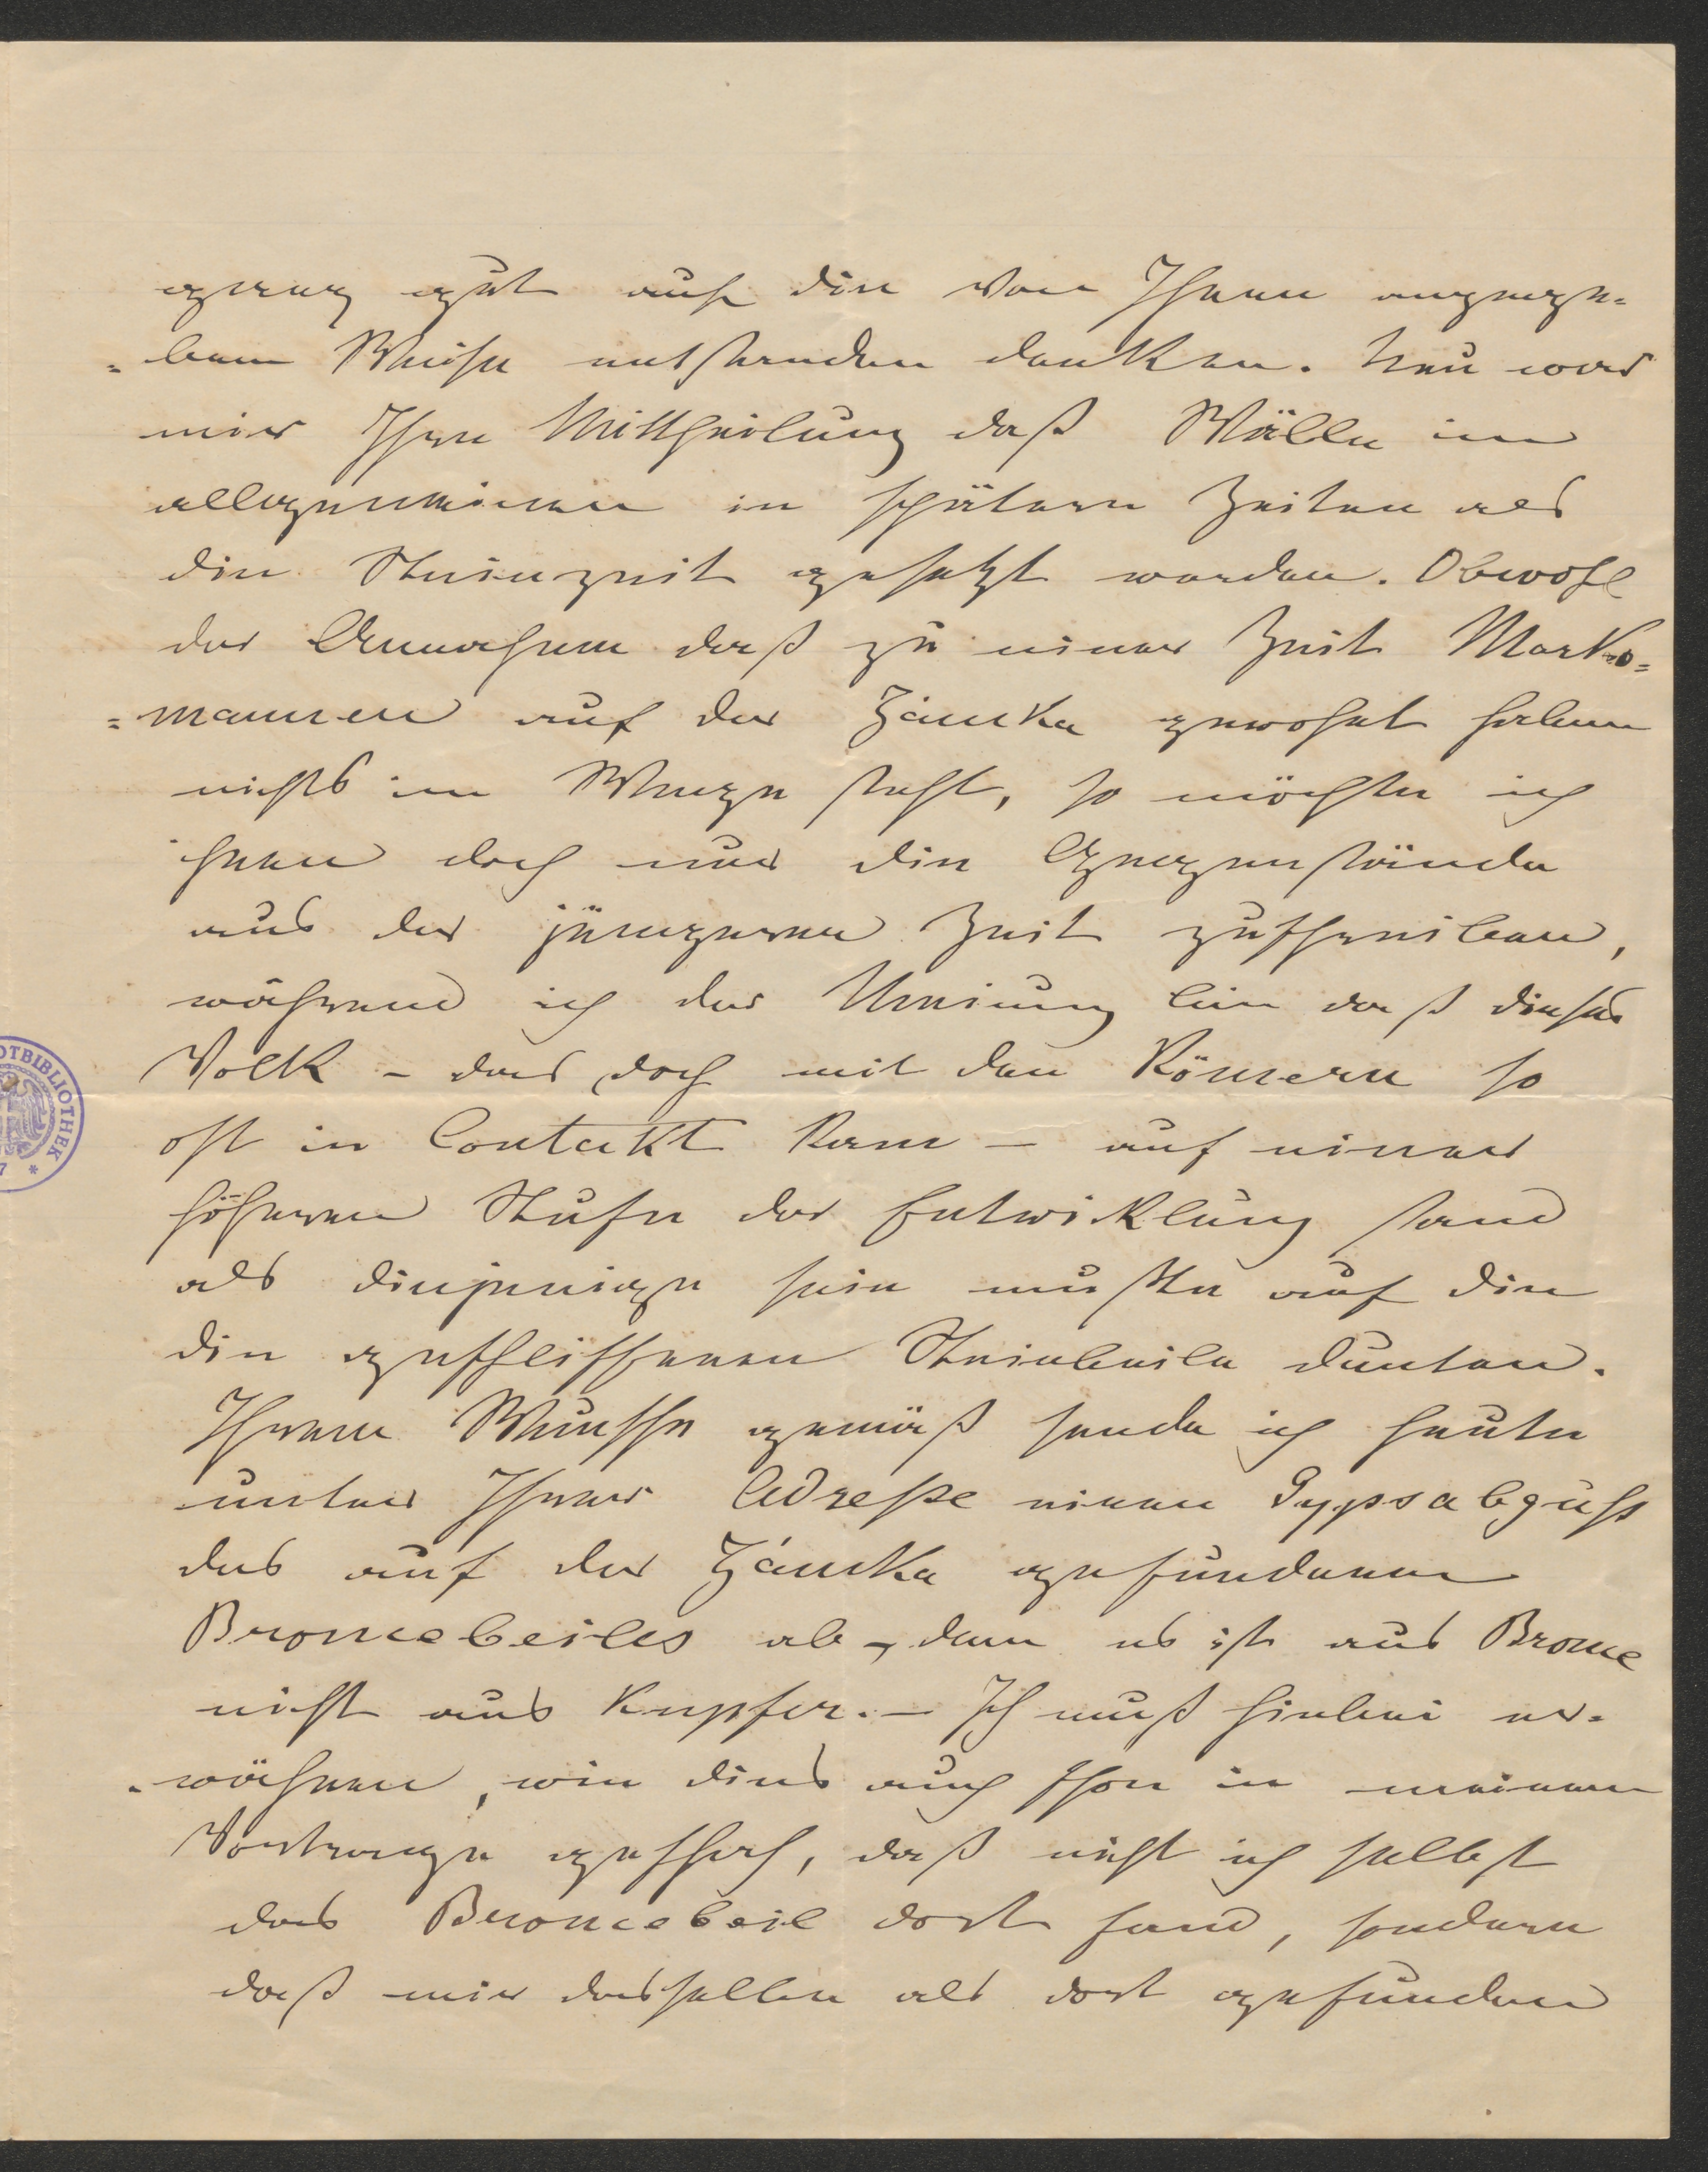 ganz gut auf die von Ihnen angege-
=bene Weise entstanden denken. Neu war
mir Ihre Mittheilung daß Wälle im
allgemeinen in spätere Zeiten als
die Steinzeit gesetzt werden. Obwohl
der Annahme daß zu einer Zeit Marko=
=mannen auf der Zámka gewohnt haben
nichts im Wege steht, so möchte ich
ihnen doch nur die Gegenstände
aus der jüngeren Zeit zuschreiben,
während ich der Meinung bin daß dieses
Volk – das doch mit den Römern so
oft in Contakt kam – auf einer
höheren Stufe der Entwicklung stand
als diejenige sein mußte auf die
die geschliffenen Steinbeile deuten.
Ihrem Wunsche gemäß sende ich heute
unter Ihrer Adresse einen Gypsabguss
des auf der Zámka gefundenen
Broncebeiles ab, denn es ist aus Bronce
nicht aus Kupfer. – Ich muß hiebei er=
=wähnen, wie dies auch schon in meinem
Vortrage geschah, daß nicht ich selbst
das Broncebeil dort fand, sondern
daß mir dasselbe als dort gefunden
OTBIBLIOTHEK
7 *